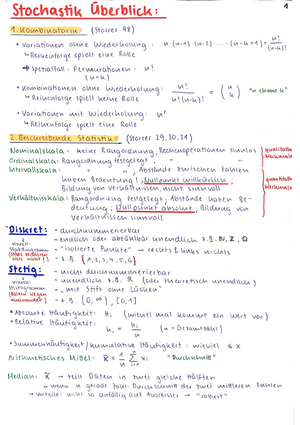 Stochastik Überblick:
1
1. Kombinatorik (Storrer 48)
• Variationen ohne Wiederholung: n·(n-1)·(n-2)·...·(n-k+1) = n!/(n-k)!
↳ Reihenfolge spielt eine Rolle
→ Spezialfall: Permutationen: n!
(n=k)
• Kombinationen ohne Wiederholung: n!/k!(n-k)! = (n k) "n choose k"
↳ Reihenfolge spielt keine Rolle
• Variationen mit Wiederholung: nᵏ
↳ Reihenfolge spielt eine Rolle
2. Beschreibende Statistik: (Storrer 29,30,31)
Nominalskala: keine Rangordnung, Rechenoperationen sinnlos
Ordinalskala: Rangordnung festgelegt
qualitative Merkmale
Intervallskala: " " , Abstände zwischen Zahlen
haben Bedeutung, Nullpunkt willkürlich,
Bildung von Verhältnissen nicht sinnvoll
quantitative Merkmale
Verhältnisskala: Rangordnung festgelegt, Abstände haben Be-
deutung, Nullpunkt absolut, Bildung von
Verhältnissen sinnvoll
Diskret: - durchnummerierbar
- endlich oder abzählbar unendlich z.B. ℕ, ℤ, ℚ
- "isolierte Punkte" → rechts & links nichts
- z.B. {1,2,3,4,5,6}
Stetig: - nicht durchnummerierbar
- unendlich z.B. ℝ (oder theoretisch unendlich)
- "mit Stift ohne Lücken"
- z.B. [0,∞), [0,1]
• Absolute Häufigkeit: Hᵢ (wieviel mal kommt ein Wert vor)
• Relative Häufigkeit:
hᵢ = Hᵢ/n (n = Gesamtzahl)
• Summenhäufigkeit/kumulative Häufigkeit: wieviel ≤ x
Arithmetisches Mittel: x̄ = 1/n Σ xᵢ "Durchschnitt"
Median: x̃ → teilt Daten in zwei gleiche Hälften
↳ wenn n gerade Zahl: Durchschnitt der zwei mittleren Zahlen
→ Vorteile: nicht so anfällig auf Ausreisser → "robust"